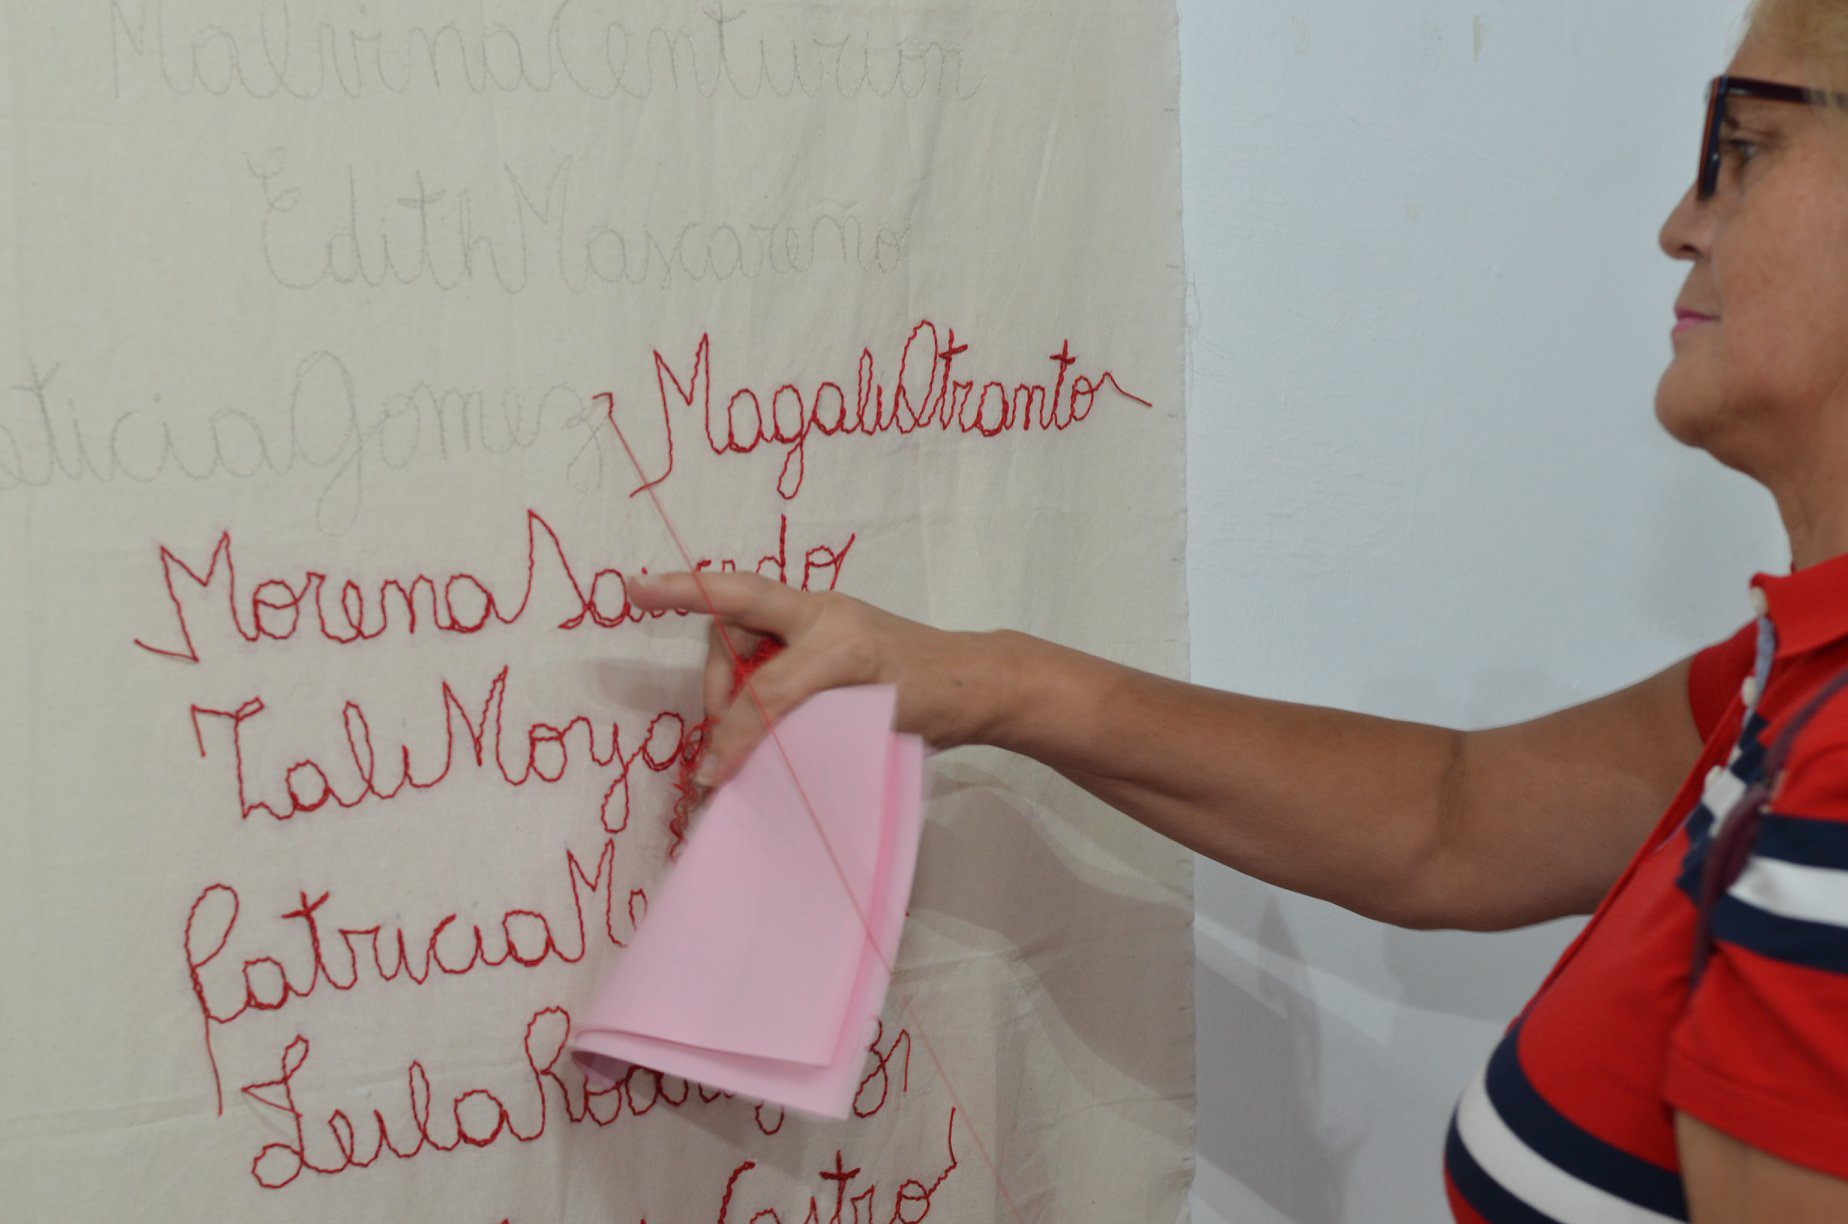 Malvina Centurion
Edith Mascareño
Leticia Gomez Magali Otranto
Morena
Tali Moya
Patricia
Leila
Castro